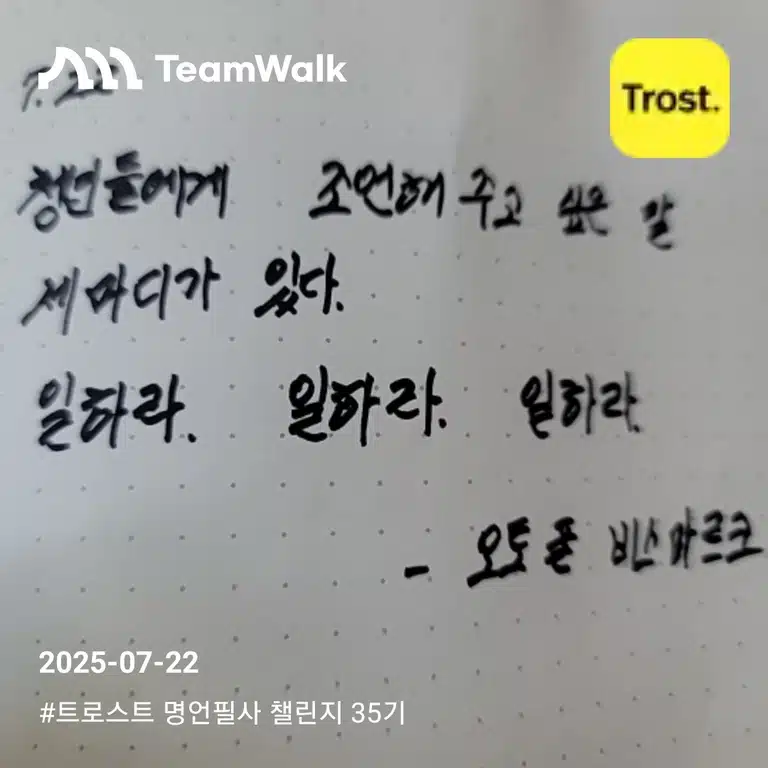 TeamWalk
Trost.
7. 22
청년들에게 조언해 주고 싶은 말
세마디가 있다.
일하라. 일하라. 일하라.
- 오토 폰 비스마르크
2025-07-22
#트로스트 명언필사 챌린지 35기